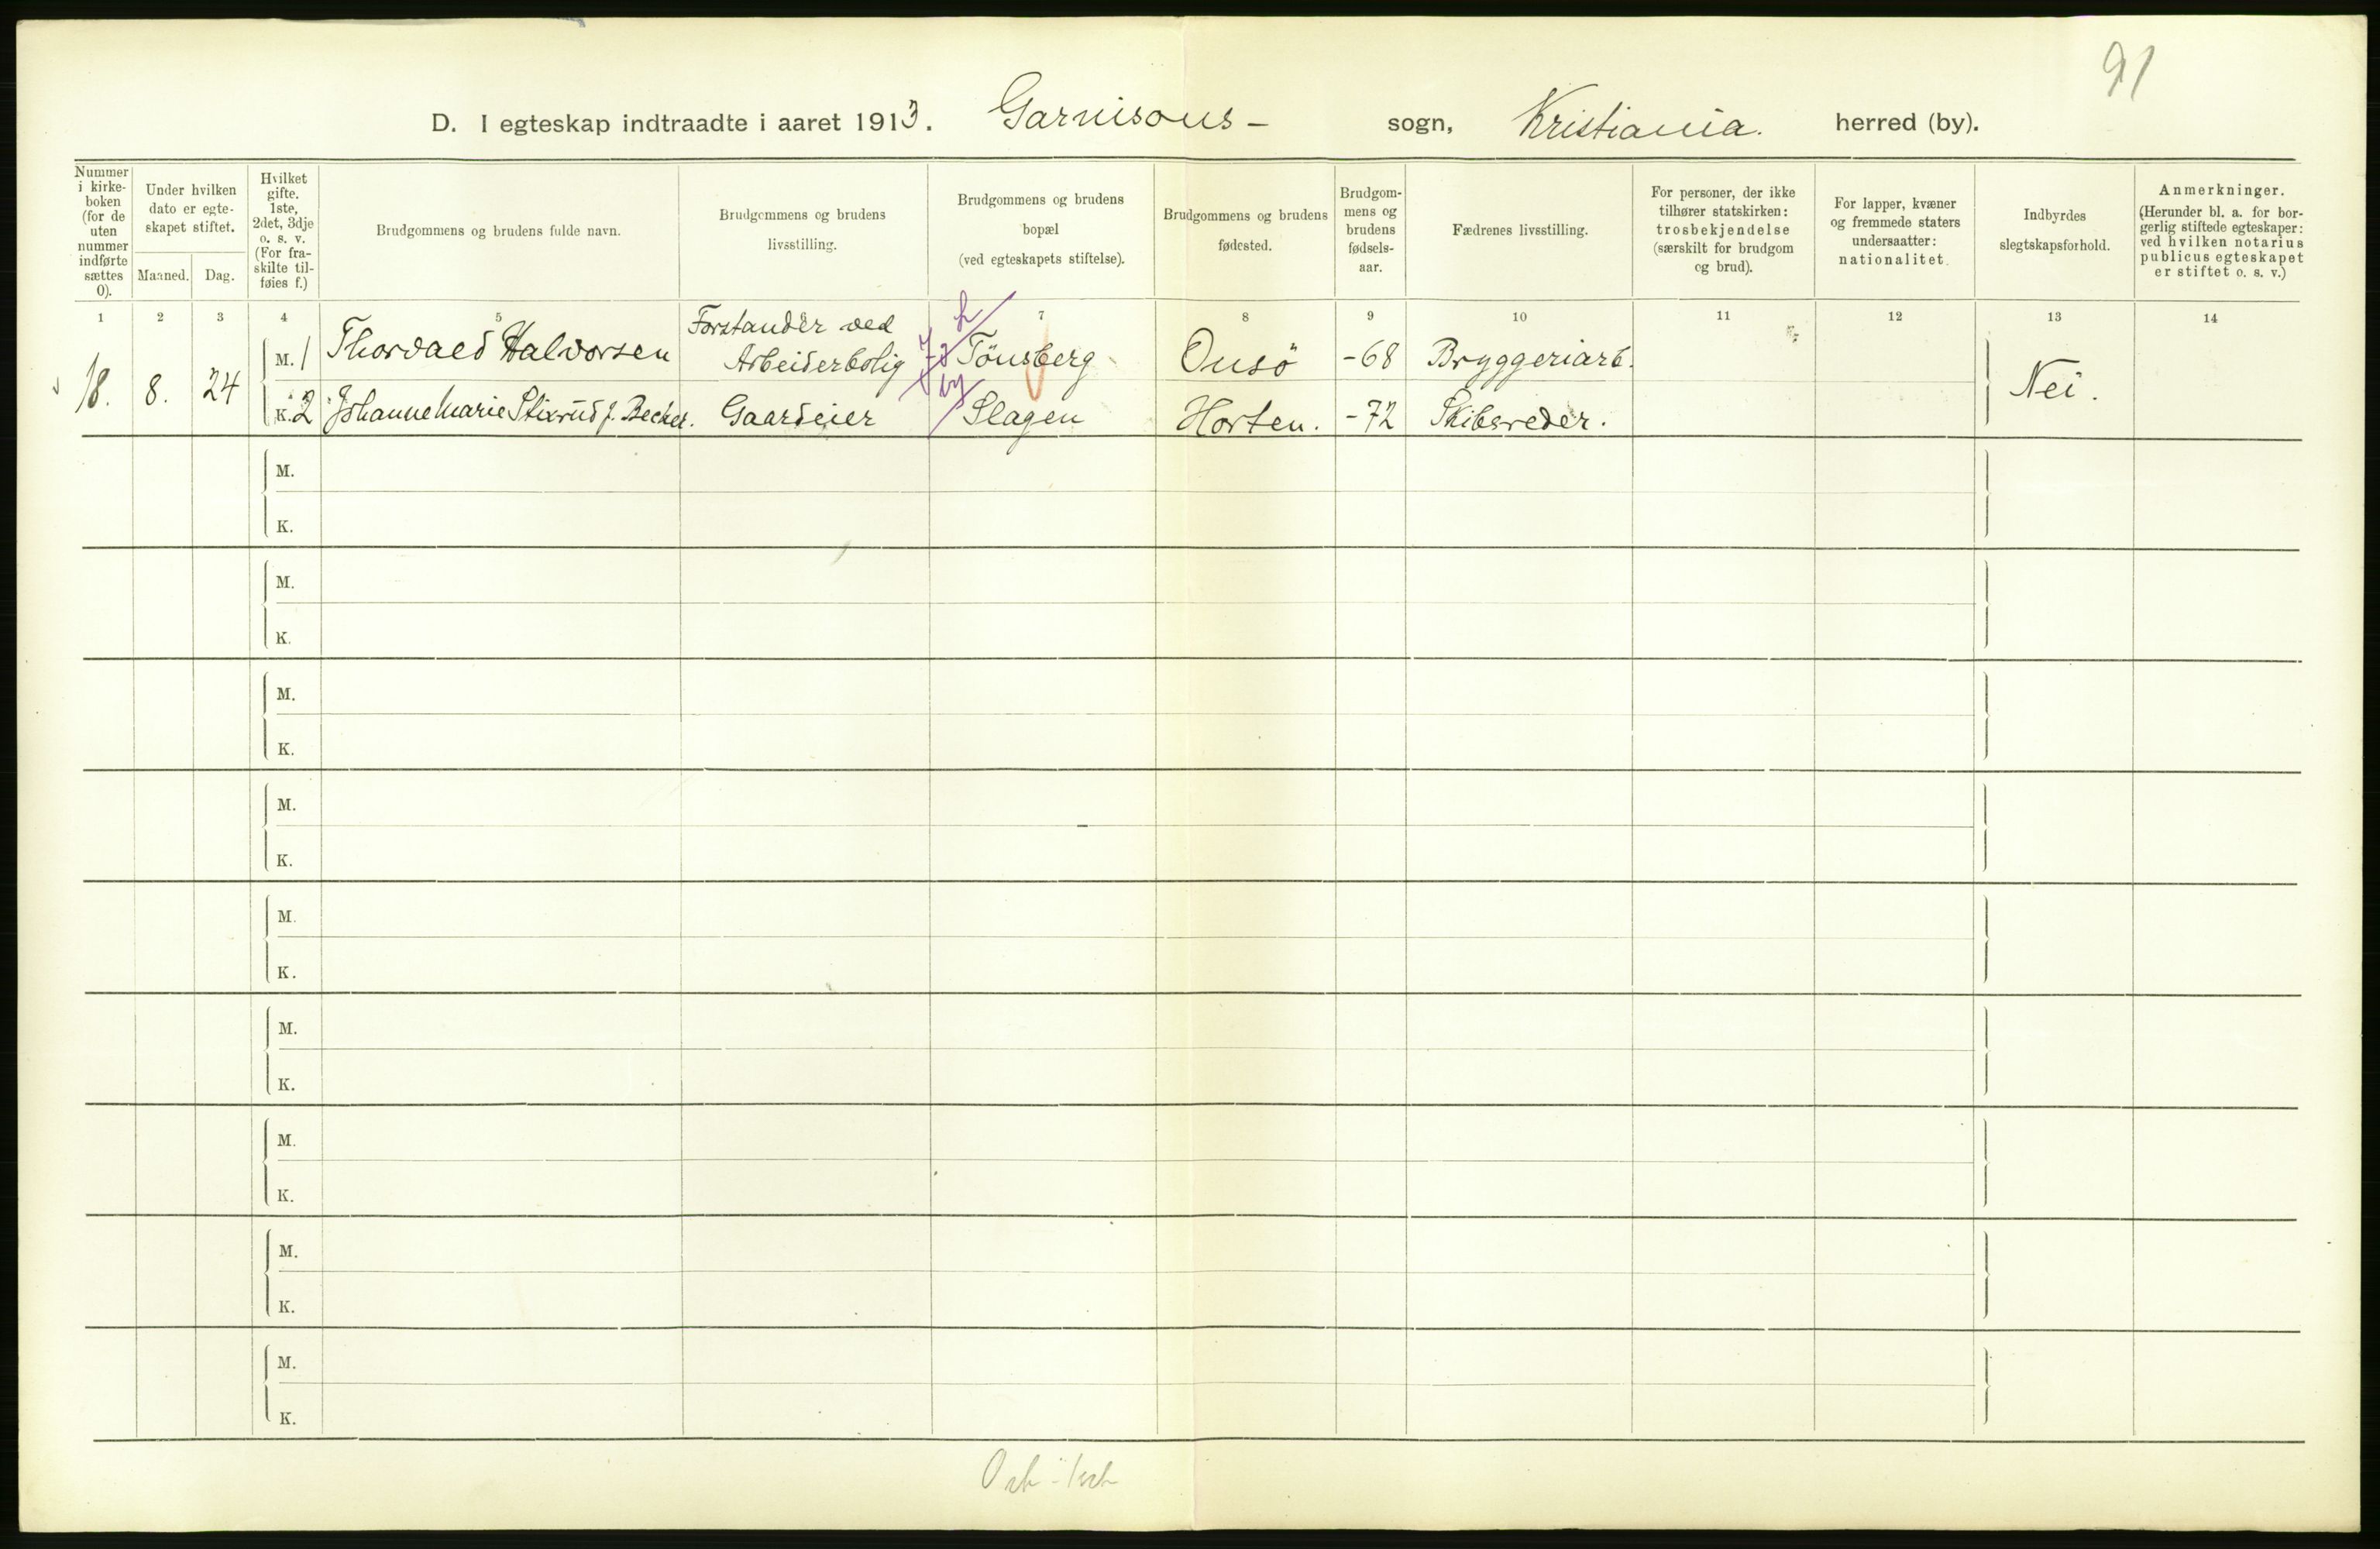 91
D. I egteskap indtraadte i aaret 1913. Garnisons- sogn, Kristiania. herred (by).
Nummer i kirke-boken (for de uten nummer indførte sættes 0).
Under hvilken dato er egte-skapet stiftet.
Maaned.
Dag.
Hvilket gifte. 1ste, 2det, 3dje o. s. v. (For fra-skilte til-føies f.)
Brudgommens og brudens fulde navn.
Brudgommens og brudens livsstilling.
Brudgommens og brudens bopæl (ved egteskapets stiftelse).
Brudgommens og brudens fødested.
Brudgom-mens og brudens fødsels-aar.
Fædrenes livsstilling.
For personer, der ikke tilhører statskirken: trosbekjendelse (særskilt for brudgom og brud).
For lapper, kvæner og fremmede staters undersaatter: nationalitet.
Indbyrdes slegtskapsforhold.
Anmerkninger. (Herunder bl. a. for bor-gerlig stiftede egteskaper: ved hvilken notarius publicus egteskapet er stiftet o. s. v.)
1 2 3 4 5 7 8 9 10 11 12 13 14
18. 8. 24
M. 1 Thorvald Halvorsen Forstander ved Arbeiderbolig Tönsberg Onsö -68 Bryggeriarb.
K. 2 Johanne Marie Stixrud f. Becker. Gaardeier Slagen Horten. -72 Skibsreder.
Nei.
M.
K.
M.
K.
M.
K.
M.
K.
M.
K.
M.
K.
M.
K.
M.
K.
M.
K.